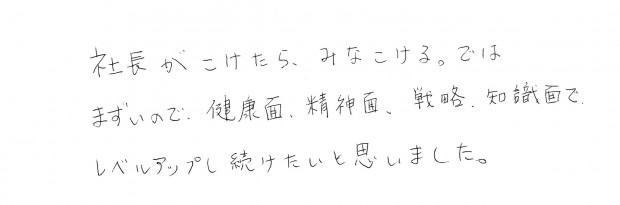 社長がこけたら、みなこける。では
まずいので、健康面、精神面、戦略、知識面で、
レベルアップし続けたいと思いました。